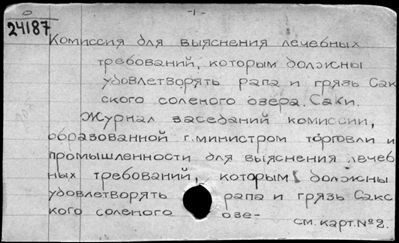 24187
-1-
Комиссия для выяснения лечебных
требований, которым должны
удовлетворять рапа и грязь Сак
ского соленого озера. Саки.
Журнал заседаний комиссии,
образованной г. министром торговли и
промышленности для выяснения лечеб
ных требований, которым должны
удовлетворять рапа и грязь Сакс
кого соленого озе-
см. карт. №2.